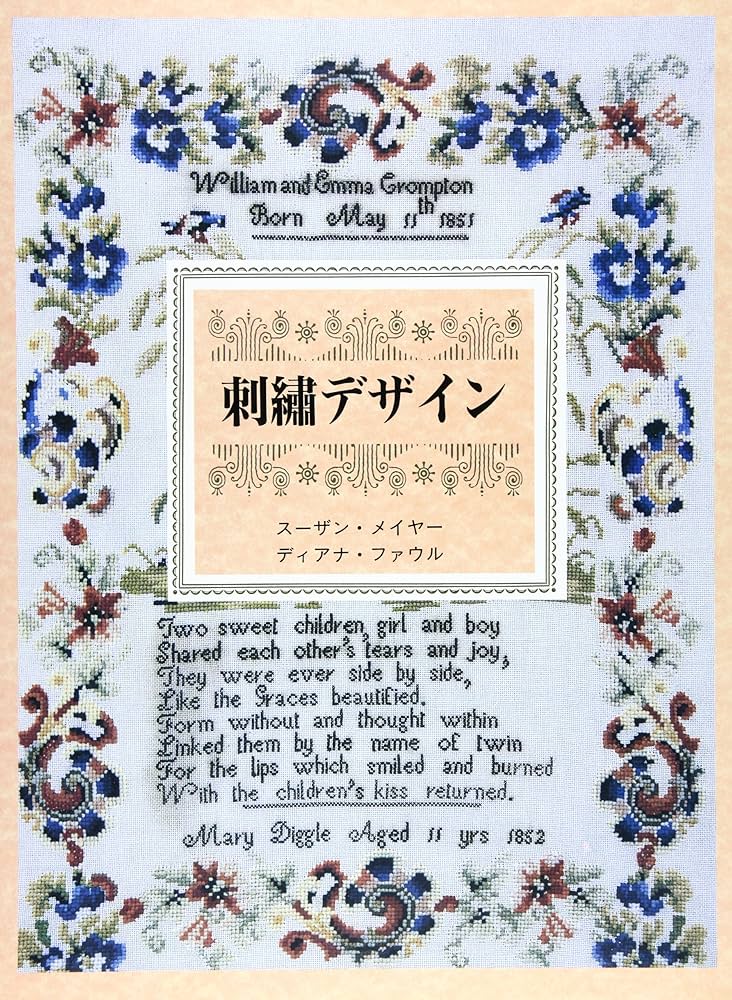 William and Emma Crompton
Born May 11th 1851
刺繍デザイン
スーザン・メイヤー
ディアナ・ファウル
Two sweet children, girl and boy
Shared each other's tears and joy,
They were ever side by side,
Like the Graces beautified.
Form without and thought within
Linked them by the name of twin
For the lips which smiled and burned
With the children's kiss returned.
Mary Diggle Aged 11 yrs 1852